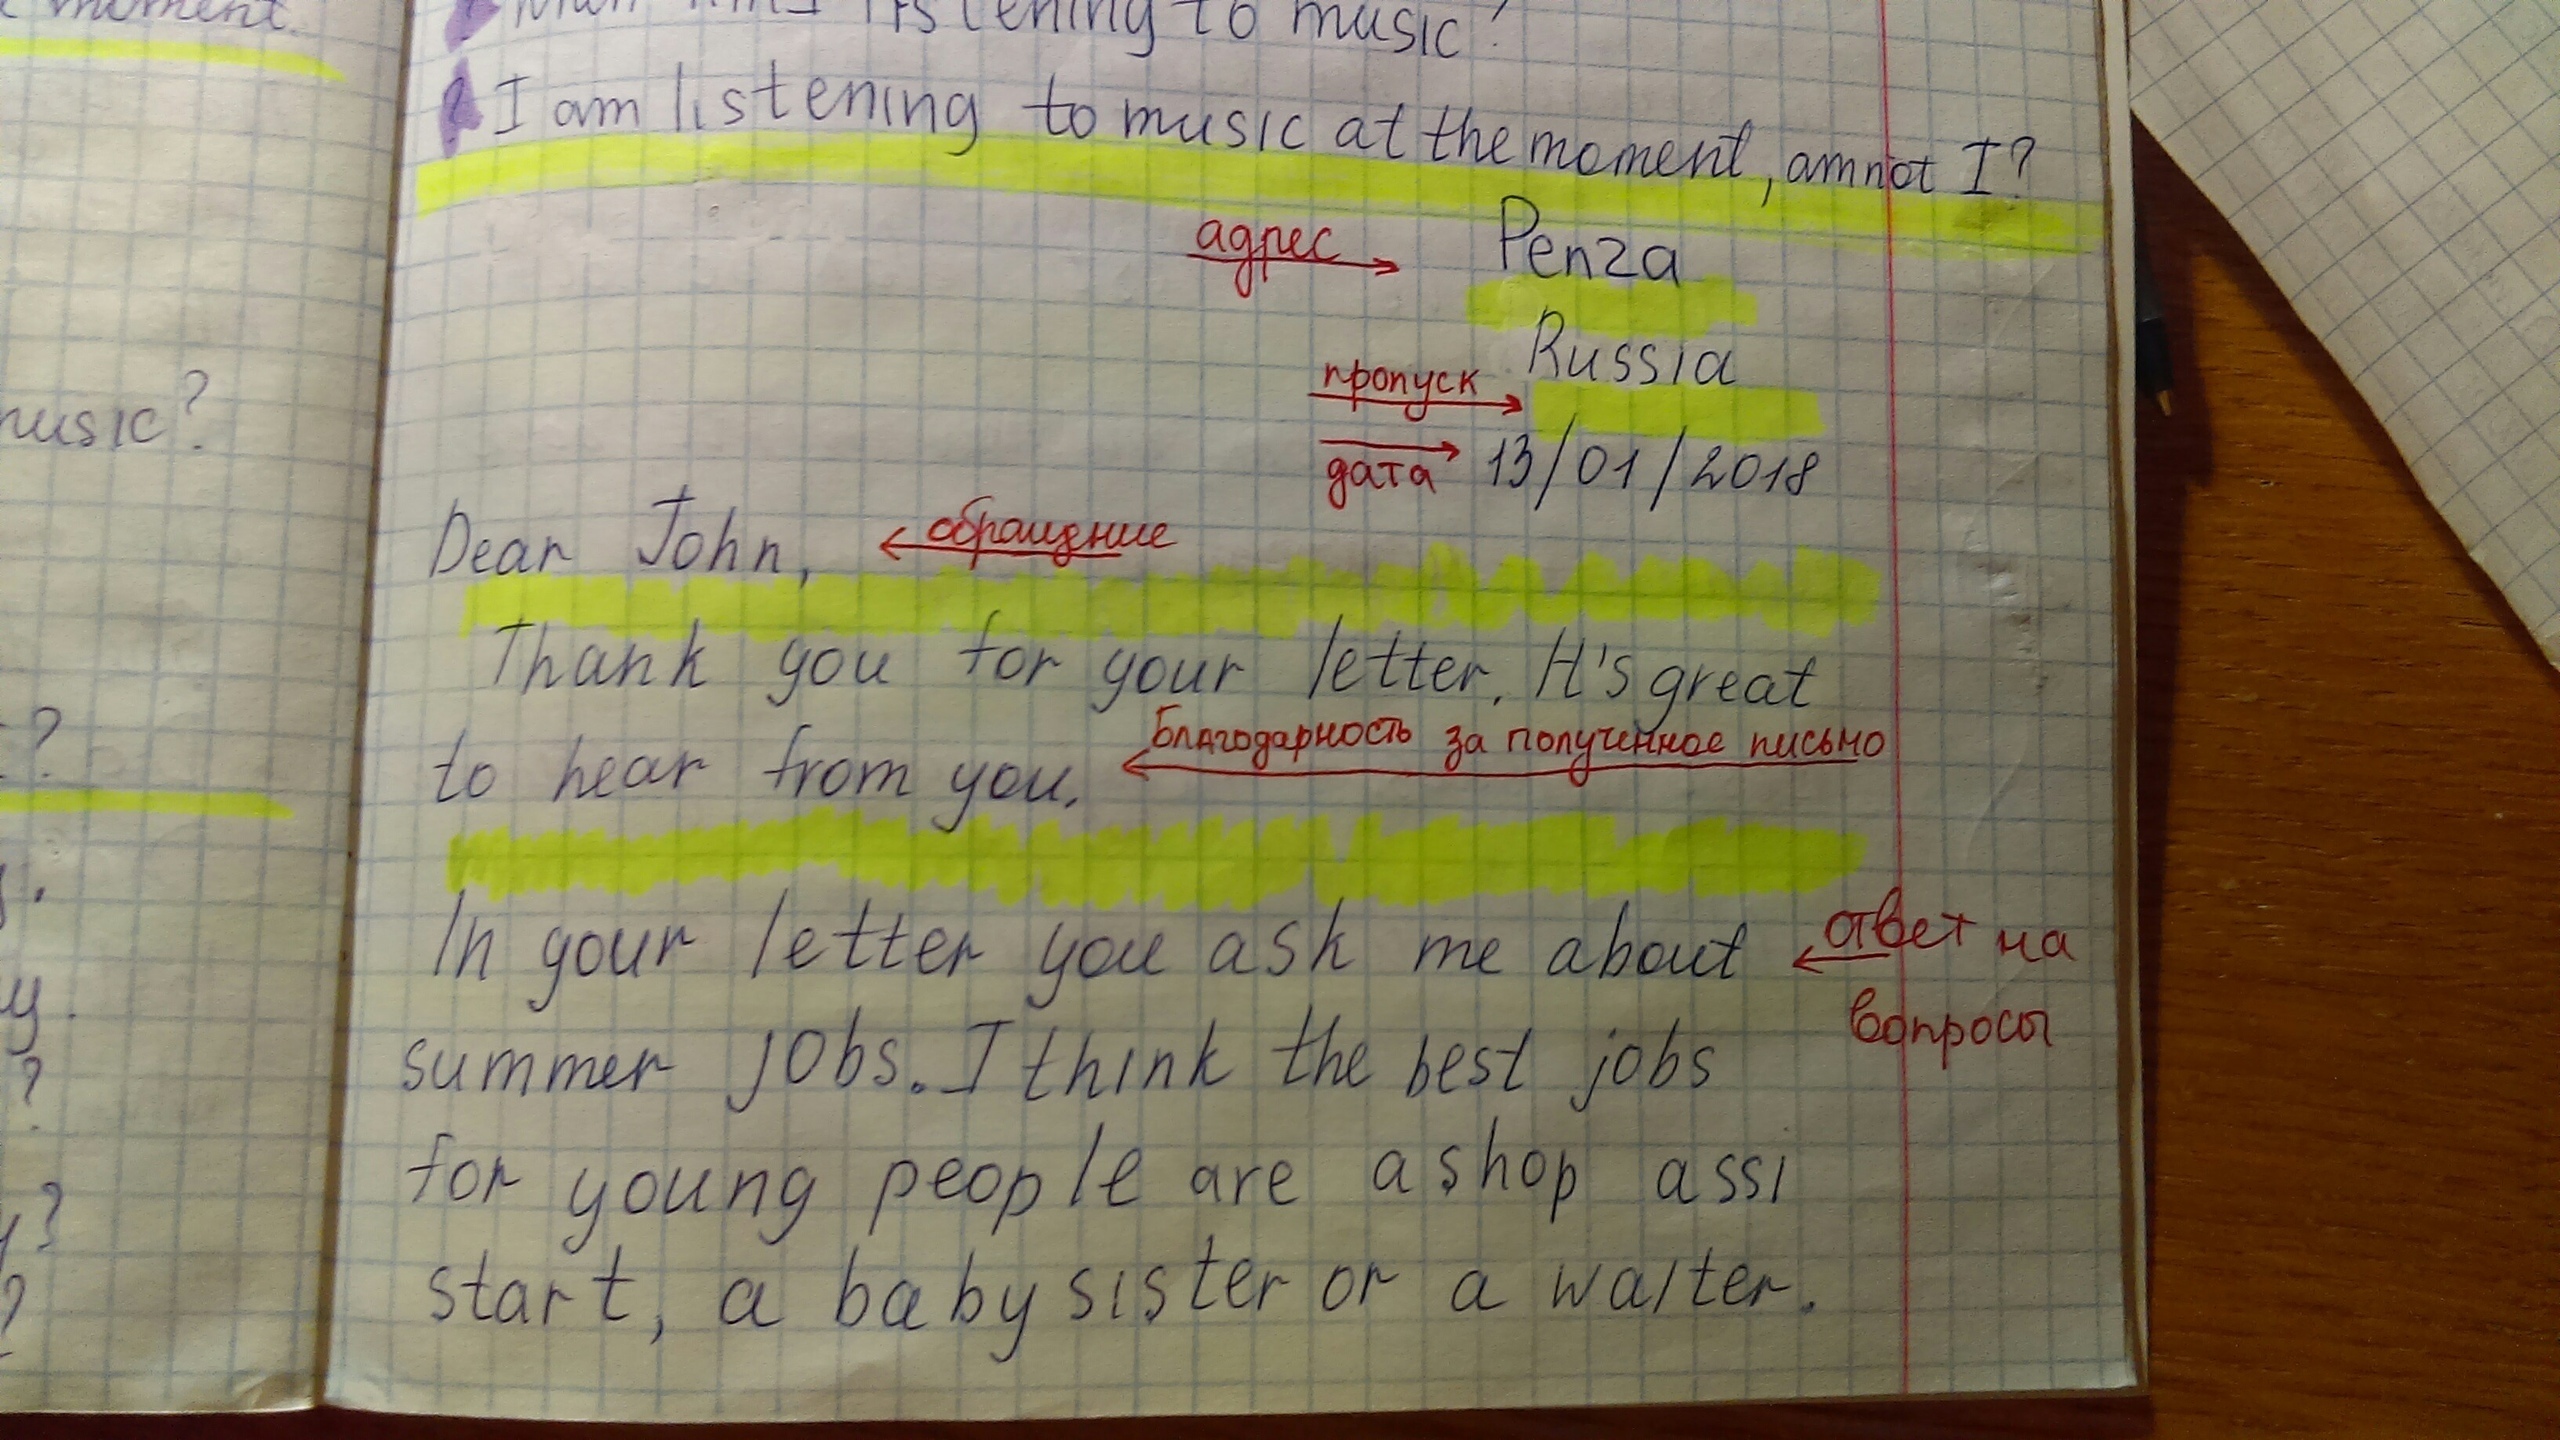 moment.
listening to music?
? I am listening to music at the moment, am not I?
адрес → Penza
Russia
пропуск →
дата → 13/01/2018
Dear John, ← обращение
Thank you for your letter. It's great
to hear from you. ← Благодарность за полученное письмо
In your letter you ask me about ← ответ на
вопросы
summer jobs. I think the best jobs
for young people are a shop assi
start, a baby sister or a waiter.
music?
?
y.
?
y?
?